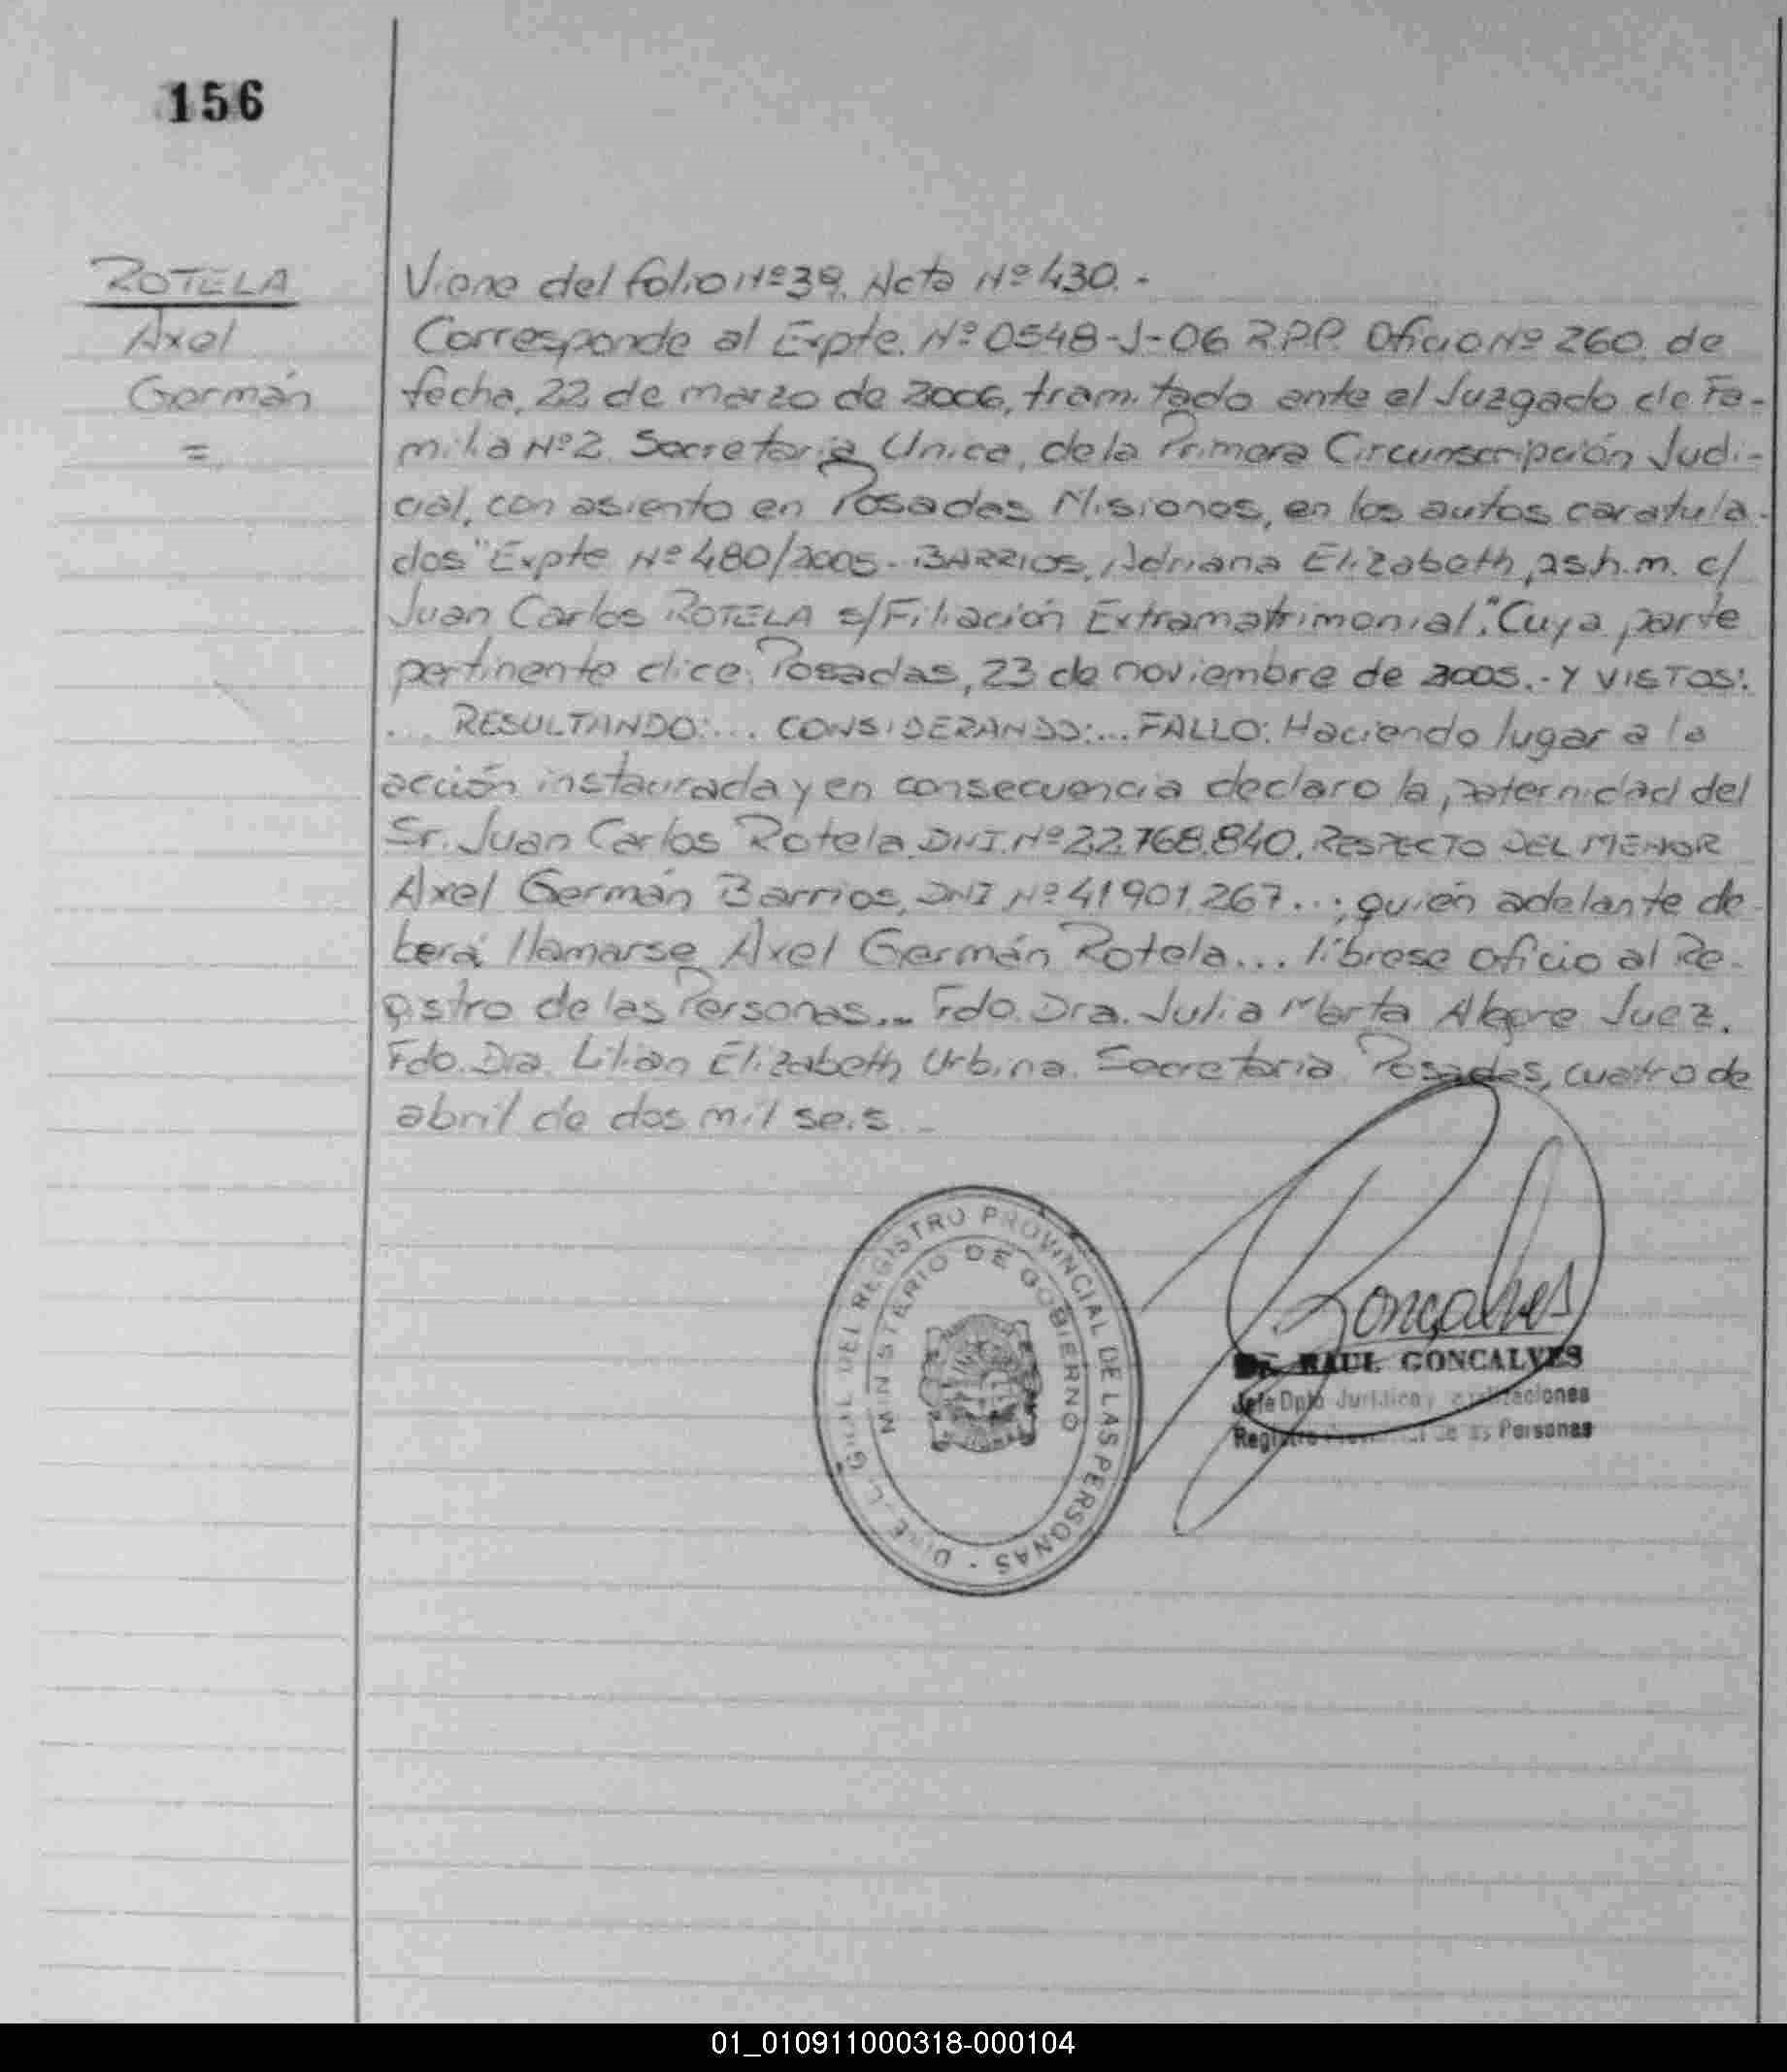 156
ROTELA
Axel
Germán
=.
Viene del folio Nº 39. Acta Nº 430.-
Corresponde al Expte. Nº 0548-J-06 R.P.P. Oficio Nº 260, de
fecha, 22 de marzo de 2006, tramitado ante el Juzgado de Fa-
milia Nº 2. Secretaria Unica, de la Primera Circunscripción Judi-
cial, con asiento en Posadas Misiones, en los autos caratula-
dos "Expte Nº 480/2005.- BARRIOS, Adriana Elizabeth, p.s.h.m. c/
Juan Carlos ROTELA s/Filiación Extramatrimonial". Cuya parte
pertinente dice: Posadas, 23 de noviembre de 2005.- Y VISTOS:.
... RESULTANDO:... CONSIDERANDO:... FALLO: Haciendo lugar a la
acción instaurada y en consecuencia declaro la paternidad del
Sr. Juan Carlos Rotela. DNI. Nº 22.768.840. RESPECTO DEL MENOR
Axel Germán Barrios, DNI Nº 41901.267...; quién adelante de-
berá llamarse Axel Germán Rotela... líbrese oficio al Re-
gistro de las Personas... Fdo. Dra. Julia Marta Alegre Juez.
Fdo. Dra. Lilian Elizabeth Urbina. Secretaria. Posadas, cuatro de
abril de dos mil seis.-
DIRE L. GRAL DEL REGISTRO PROVINCIAL DE LAS PERSONAS -
MINISTERIO DE GOBIERNO
Goncalves
Dr. RAUL GONCALVES
Jefe Dpto Jurídico y
Registro Provincial de las Personas
01_010911000318-000104